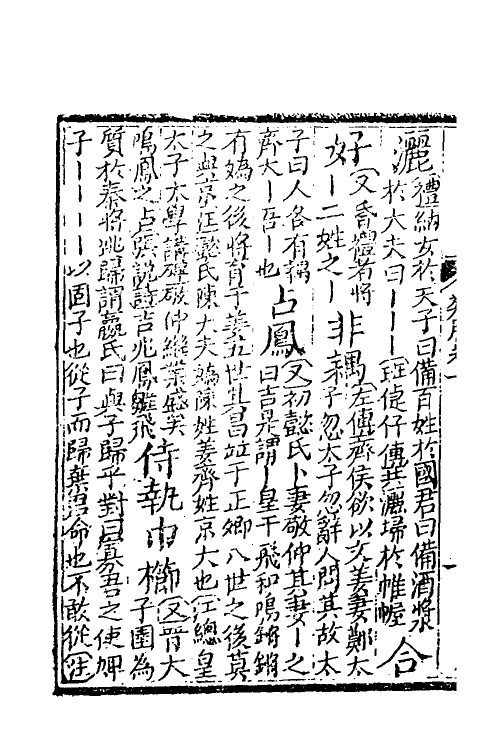 灑禮納女於天子曰備百姓於國君曰備酒漿
於大夫曰丨丨丨班倢伃傳共灑埽於帷幄合
好又昏禮者將
丨二姓之丨非耦左傳齊侯欲以文姜妻鄭太
子忽太子忽辭人問其故太
子曰人各有耦
齊大丨吾丨也占鳳又初懿氏卜妻敬仲其妻丨之
曰吉是謂丨皇于飛和鳴鏘鏘
有媯之後將育于姜五世其昌竝于正卿八世之後莫
之與京注懿氏陳大夫媯陳姓姜齊姓京大也江總皇
太子太學講碑仲繼業盛矣
鳴鳳之占張說詩吉兆鳳雛飛侍執巾櫛又晉大
子圉為
質於秦將逃歸謂嬴氏曰與子歸乎對曰寡君之使婢
子丨丨丨丨以固子也從子而歸棄君命也不敢從注